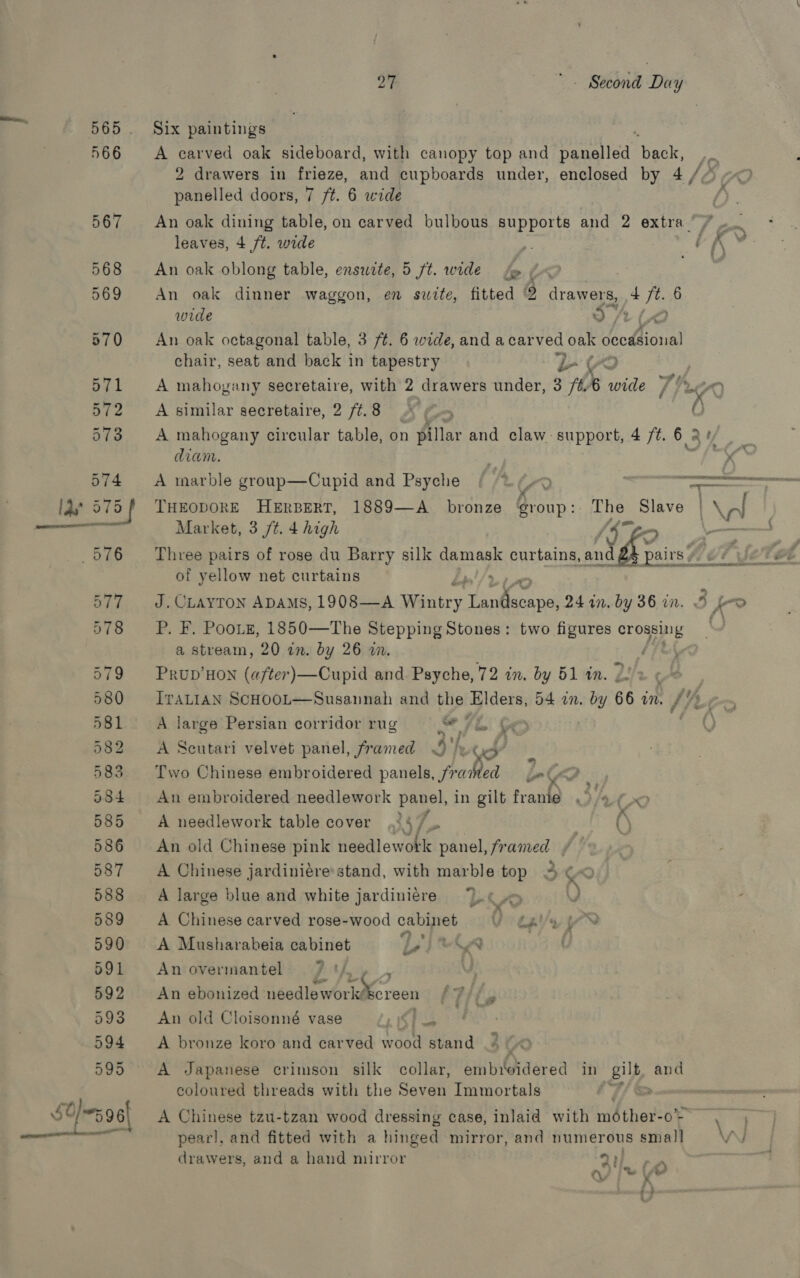 27 Second Day
565 Six paintings
566 A carved oak sideboard, with canopy top and panelled back,
2 drawers in frieze, and cupboards under, enclosed by 4
panelled doors, 7 ft. 6 wide
567 An oak dining table, on carved bulbous supports and 2 extra
leaves, 4 ft. wide
568 An oak oblong table, ensuite, 5 ft. wide
569 An oak dinner waggon, en suite, fitted 2 drawers, 4 ft. 6
wide
570 An oak octagonal table, 3 ft. 6 wide, and a carved oak occasional
chair, seat and back in tapestry
571 A mahogany secretaire, with 2 drawers under, 3 ft. 6 wide
572 A similar secretaire, 2 ft. 8
573 A mahogany circular table, on pillar and claw support, 4 ft. 6
diam.
574 A marble group—Cupid and Psyche
575 THEODORE HERBERT, 1889—A bronze group: The Slave
Market, 3 ft. 4 high
576 Three pairs of rose du Barry silk damask curtains, and pairs
of yellow net curtains
577 J. CLAYTON ADAMS, 1908—A Wintry Landscape, 24 in. by 36 in.
578 P. F. POOLE, 1850—The Stepping Stones: two figures crossing
a stream, 20 in. by 26 in.
579 PRUD'HON (after)—Cupid and Psyche, 72 in. by 51 in.
580 ITALIAN SCHOOL—Susannah and the Elders, 54 in. by 66 in.
581 A large Persian corridor rug
582 A Scutari velvet panel, framed
583 Two Chinese embroidered panels, framed
584 An embroidered needlework panel, in gilt frame
585 A needlework table cover
586 An old Chinese pink needlework panel, framed
587 A Chinese jardinière stand, with marble top
588 A large blue and white jardinière
589 A Chinese carved rose-wood cabinet
590 A Musharabeia cabinet
591 An overmantel
592 An ebonized needlework screen
593 An old Cloisonné vase
594 A bronze koro and carved wood stand
595 A Japanese crimson silk collar, embroidered in gilt and
coloured threads with the Seven Immortals
596 A Chinese tzu-tzan wood dressing case, inlaid with mother-o'-
pearl, and fitted with a hinged mirror, and numerous small
drawers, and a hand mirror